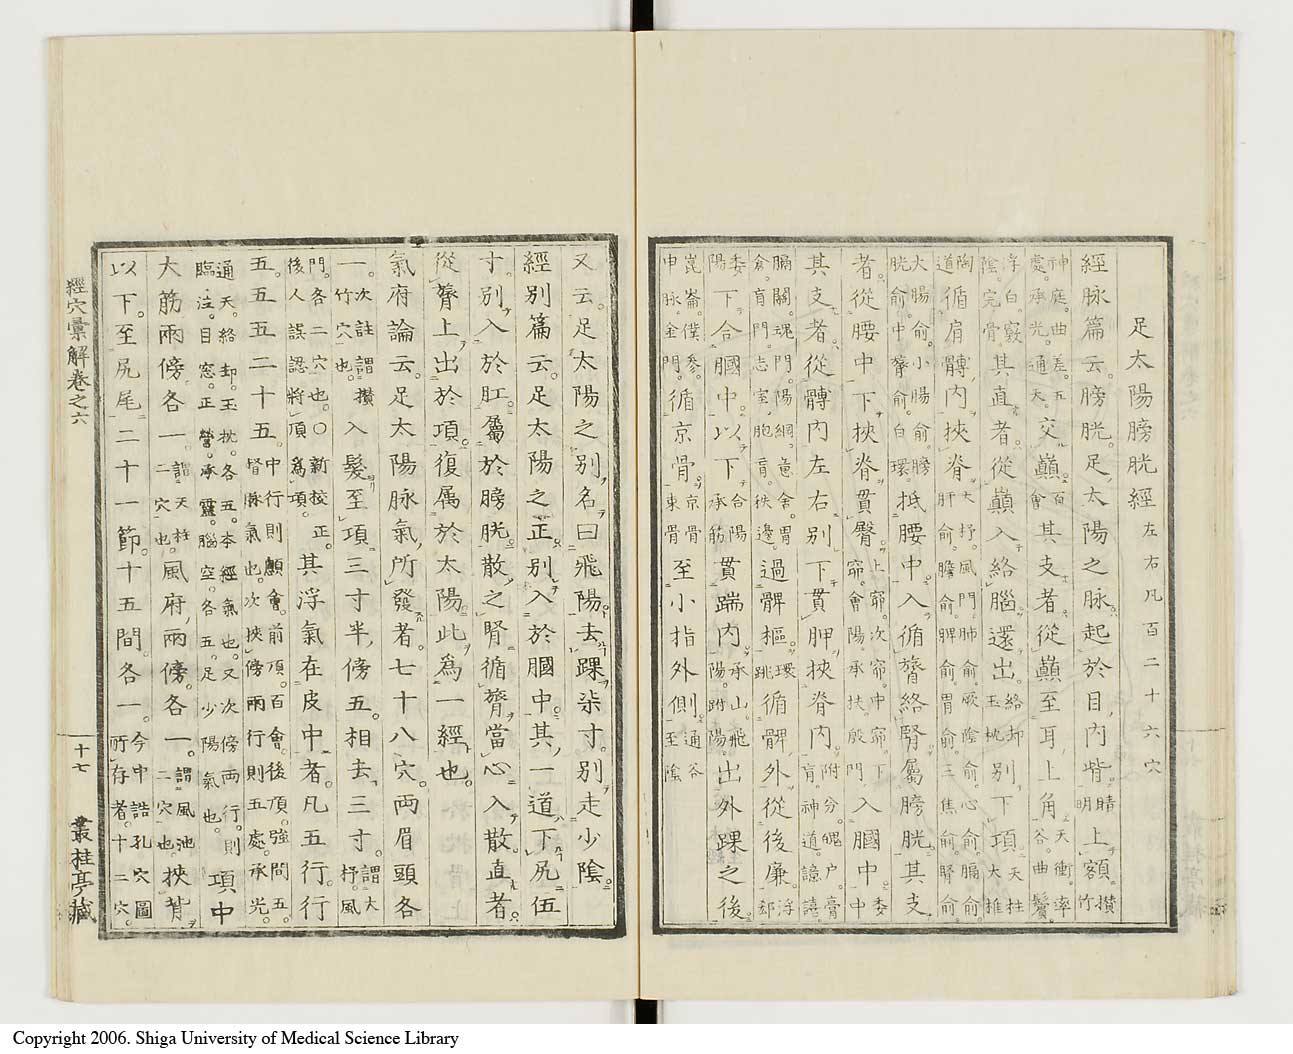 足太陽膀胱經 左右凡百二十六穴
經脉篇云。膀胱。足太陽之脉。起於目内眥。睛明上額。攅竹
神庭。曲差。五處。承光。通天。交巔。百會其支者。從巔至耳上角。天衝。率谷。曲鬢。
浮白。竅陰。完骨其直者。從巔入絡腦。還出。絡却玉枕別下項。天柱大椎
陶道循肩髆内。挾脊。大杼。風門。肺俞。厥陰俞。心俞。膈俞肝俞。膽俞。脾俞。胃俞。三焦俞。腎俞
大腸俞。小腸俞。膀胱俞。中膂俞。白環。抵腰中。入循膂絡腎。屬膀胱。其支
者。從腰中下。挾脊貫臀。上窌。次窌。中窌。下窌。會陽。承扶。殷門。入膕中。委中
其支者。從髆内左右別下貫胛。挾脊内。附分。魄户。膏肓。神道。譩譆。
膈關。魂門。陽綱。意舍。胃倉。肓門。志室。胞肓。秩邊。過髀樞。環跳循髀外。從後廉。浮郄
委陽下合膕中。以下合陽承筋貫踹内。承山。飛陽。跗陽。出外踝之後。
崑崙。僕參。申脉。金門。循京骨。京骨束骨至小指外側。通谷至陰
又云。足太陽之別。名曰飛陽。去踝柒寸。別走少陰。
經別篇云。足太陽之正。別入於膕中。其一道。下尻伍
寸。別入於肛。屬於膀胱。散之腎。循膂。當心入散。直者。
從膂上。出於項。復属於太陽。此爲一經也。
氣府論云。足太陽脉氣所發者。七十八穴。兩眉頭各
一。次註謂攅竹穴也。入髮至項三寸半。傍五。相去三寸。謂大杼。風
門。各二穴也。○新校正。後人誤認將頂爲項。其浮氣在皮中者。凡五行。行
五。五五二十五。中行則顖會。前頂。百會。後頂。強間五。督脉氣也。次挾傍兩行則五處。承光。
通天。絡却。玉枕。各五。本經氣也。又次傍兩行。則臨泣。目窓。正營。承靈。腦空。各五。足少陽氣也。項中
大筋兩傍各一。謂天柱二穴也。風府兩傍各一。謂風池二穴也。挾脊
以下。至尻尾二十一節。十五間。各一。今中誥孔穴圖所存者。十二穴。
經穴彙解卷之六
十七
叢桂亭藏
Copyright 2006. Shiga University of Medical Science Library